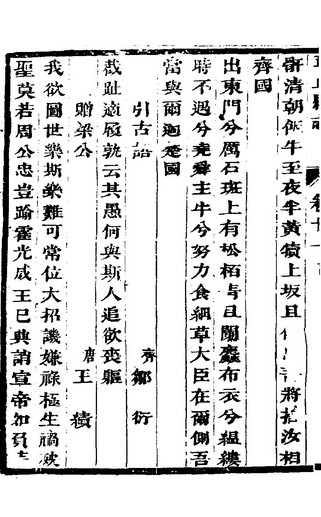 骭清朝飯牛至夜半黃犢上坂且將捨汝相
齊國
出東門兮厲石斑上有松栢青且闌麤布衣兮縕縷
時不遇兮堯舜主牛兮努力食細草大臣在爾側吾
當與爾適楚國
引古語 齊 鄒衍
截趾適屨孰云其愚何與斯人追欲喪軀
贈梁公 唐 王績
我欲圖世樂斯樂難可常位大招譏嫌祿極生禍殃
聖莫若周公忠豈踰霍光成王已興誚宣帝如負芒